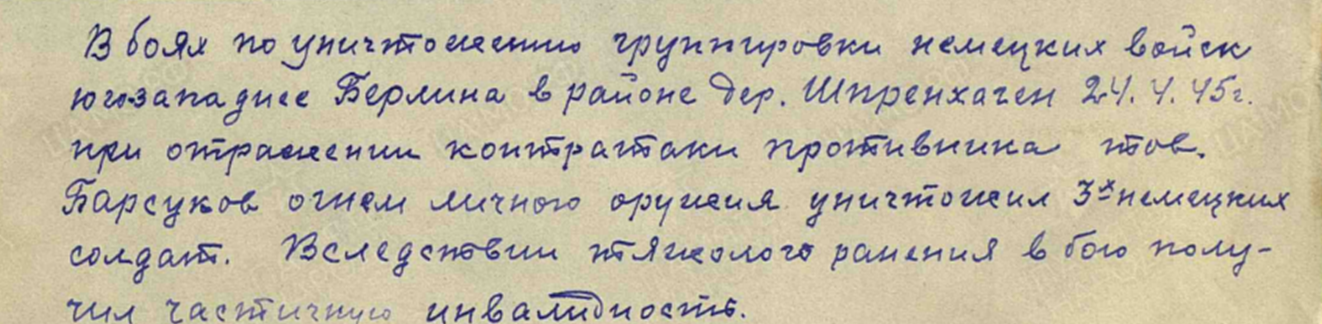 В боях по уничтожению группировки немецких войск
югозападнее Берлина в районе дер. Шпренхаген 24.4.45г.
при отражении контратаки противника тов.
Барсуков огнем личного оружия уничтожил 3х немецких
солдат. Вследствии тяжолого ранения в бою полу-
чил частичную инвалидность.